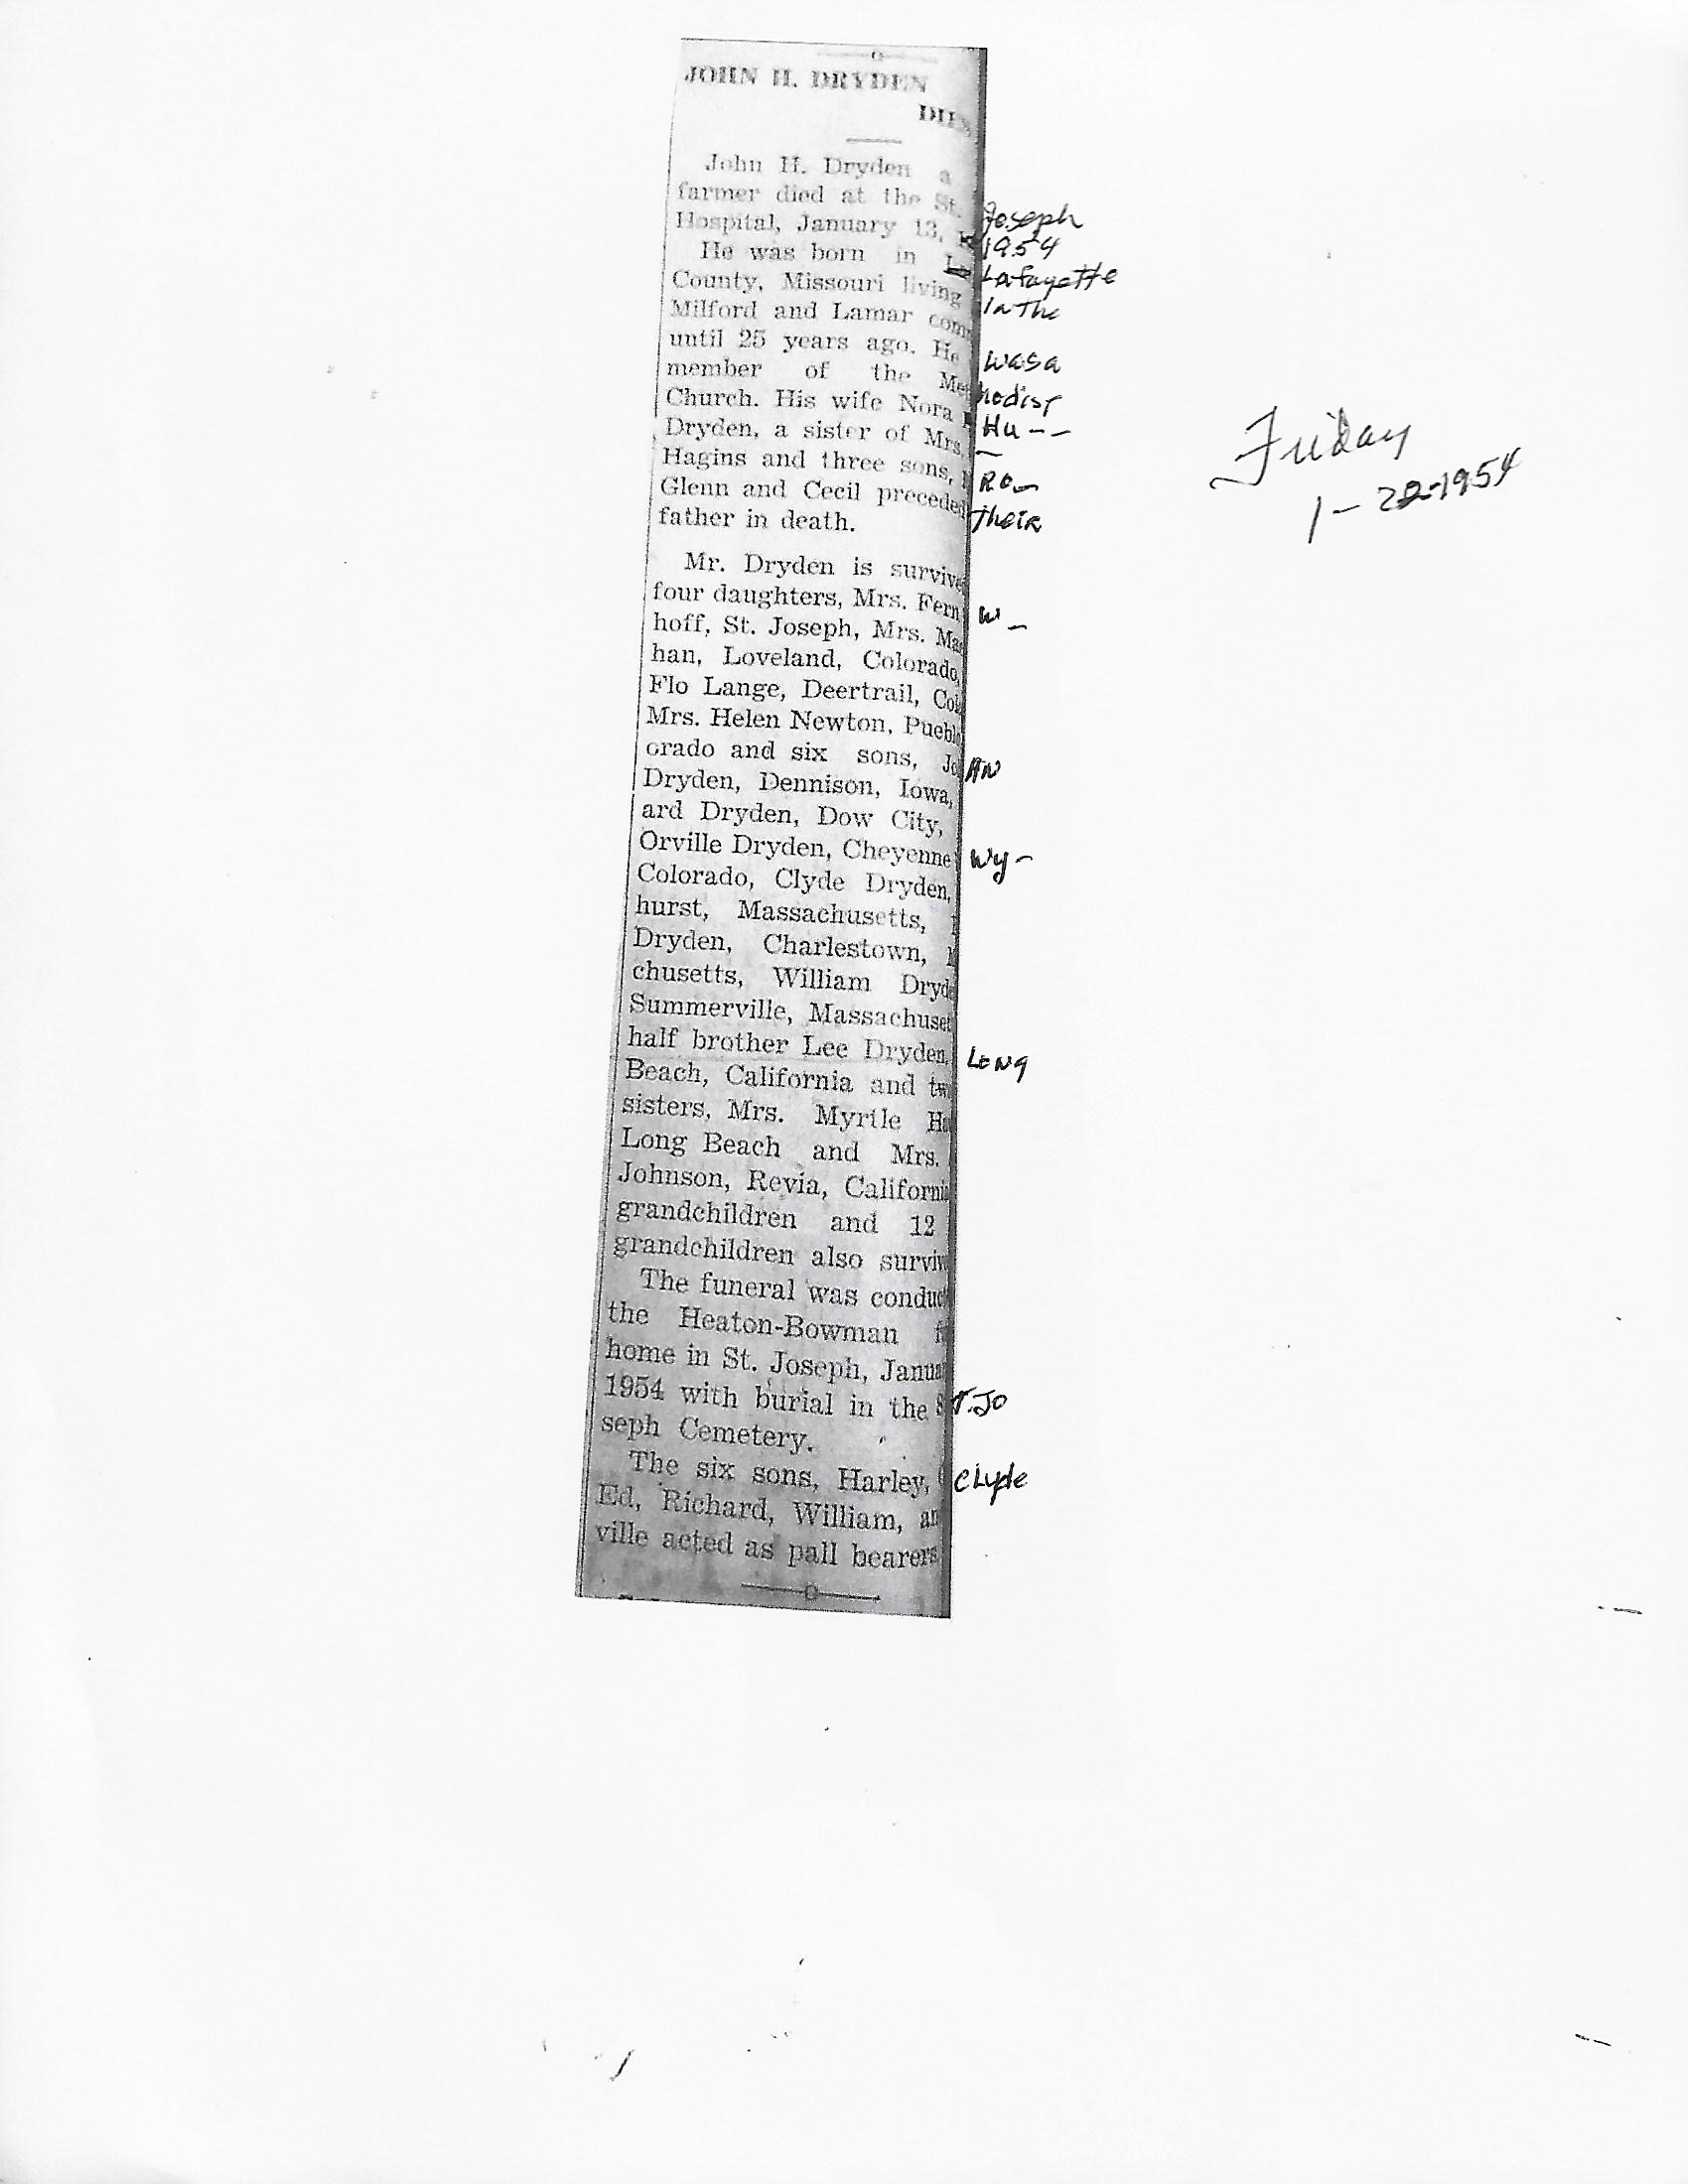 JOHN H. DRYDEN
DIES
John H. Dryden a
farmer died at the St. Joseph
Hospital, January 13, 1954
He was born in Lafayette
County, Missouri living in the
Milford and Lamar com
until 25 years ago. He was a
member of the Methodist
Church. His wife Nora Hu--
Dryden, a sister of Mrs. -
Hagins and three sons, Ro-
Glenn and Cecil preceded their
father in death.
Mr. Dryden is survive
four daughters, Mrs. Fern W-
hoff, St. Joseph, Mrs. Ma
han, Loveland, Colorado,
Flo Lange, Deertrail, Col
Mrs. Helen Newton, Pueblo
orado and six sons,
Dryden, Dennison, Iowa,
ard Dryden, Dow City,
Orville Dryden, Cheyenne Wy-
Colorado, Clyde Dryden,
hurst, Massachusetts,
Dryden, Charlestown,
chusetts, William Dryde
Summerville, Massachuset
half brother Lee Dryden, Long
Beach, California and tw
sisters, Mrs. Myrtle Ha
Long Beach and Mrs.
Johnson, Revia, Californi
grandchildren and 12
grandchildren also surviv
The funeral was conduc
the Heaton-Bowman f
home in St. Joseph, Janua
1954 with burial in the St. Jo
seph Cemetery.
The six sons, Harley, Clyde
Ed, Richard, William, an
ville acted as pall bearers
Friday
1-22-1954